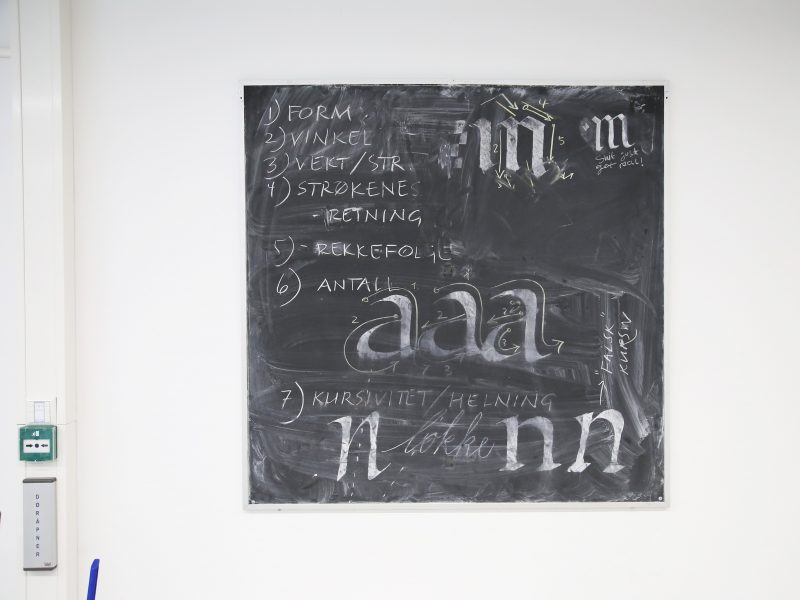 1) FORM
2) VINKEL
3) VEKT/STR.
4) STRØKENES
- RETNING
5) - REKKEFØLGE
6) ANTALL
7) KURSIVITET/HELNING
n n m
2 4 5 3
aaa
"FALSK"
KURSIV
n løkke n n
DØRÅPNER